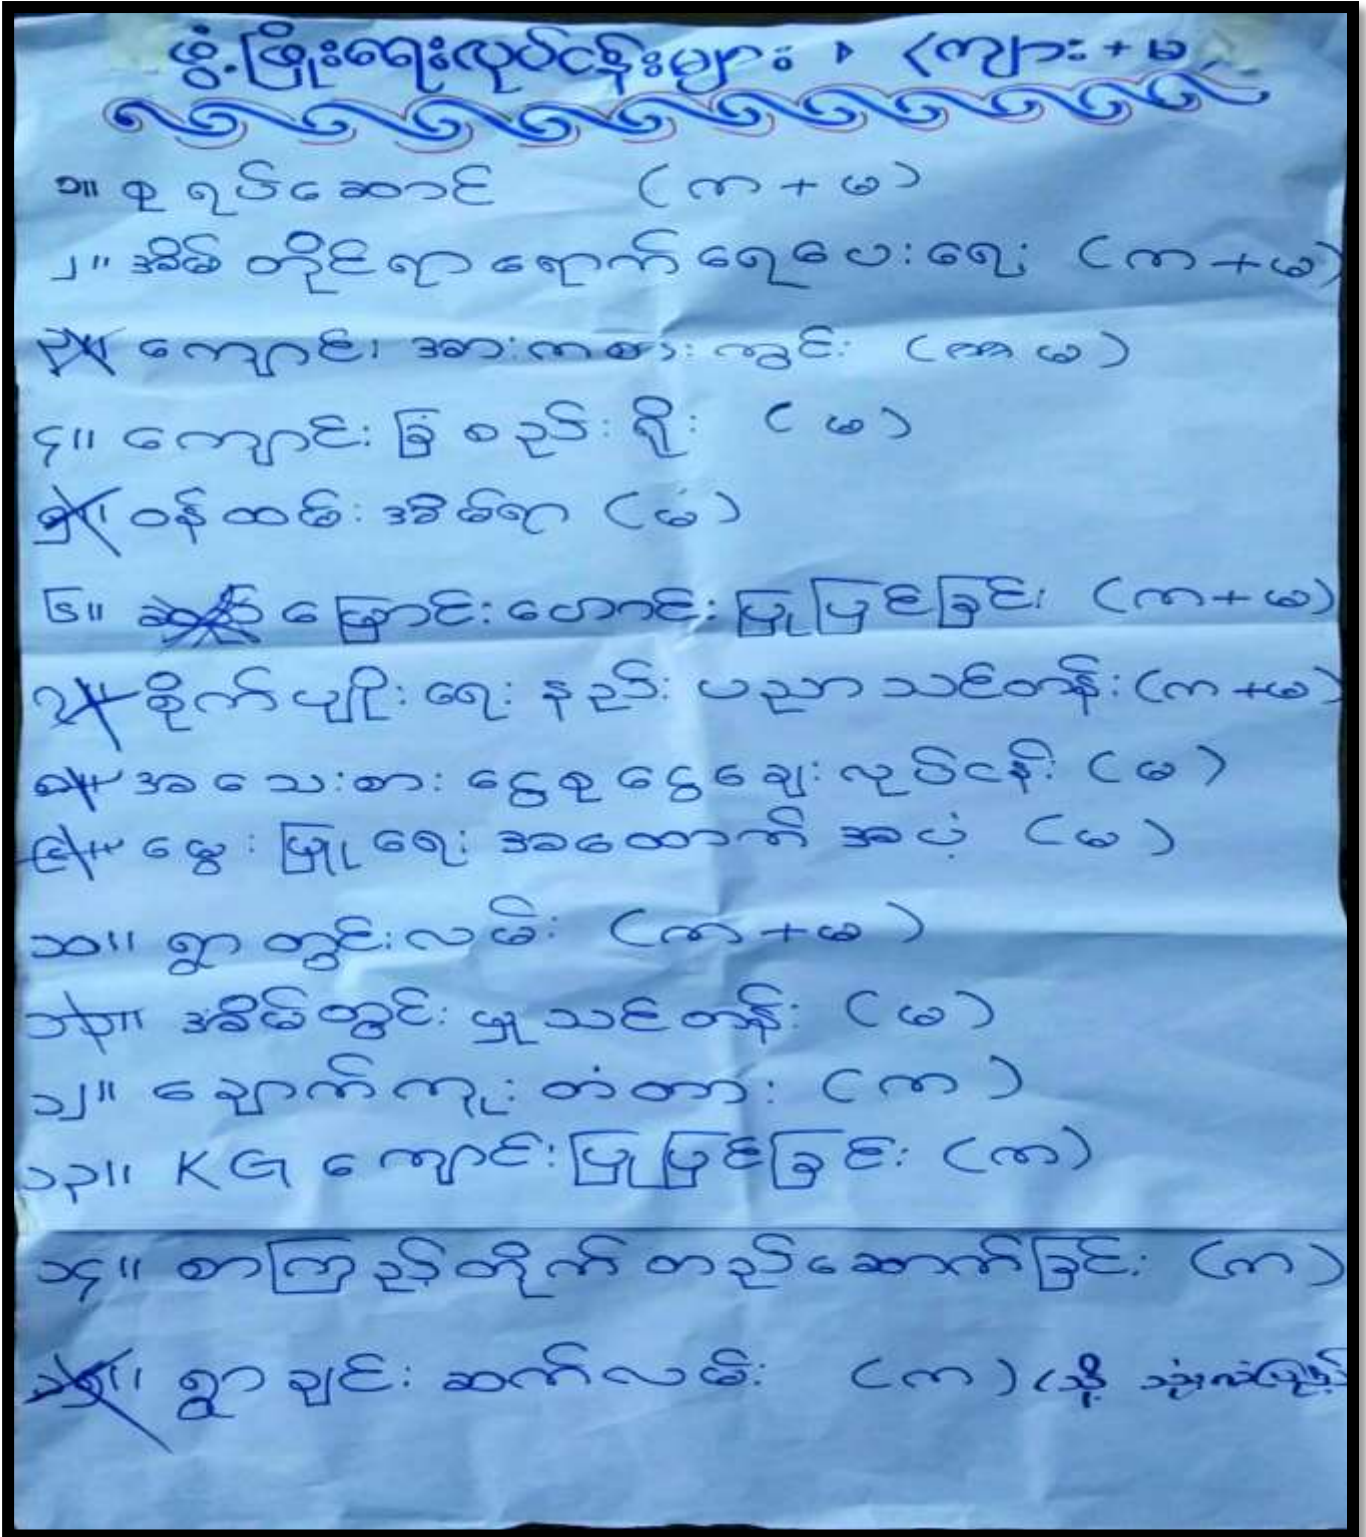 ဖွံ့ဖြိုးရေးလုပ်ငန်းများ (ကျား + မ
၁။ စု ရပ်ဆောင် (ကာ + မ)
၂။ အိမ် တိုင်ရာ ရောက် ရေပေးရေး (ကာ + မ)
၃။ ကျောင်း အားကစား ကွင်း (ကာ မ)
၄။ ကျောင်း ခြံ စည်း ရိုး (မ)
၅။ ဝန် ထမ်း အိမ်ရာ (မ)
၆။ မြောင်းဟောင်း ပြုပြင်ခြင်း (ကာ + မ)
၇။ စိုက်ပျိုး ရေး နည်း ပညာ သင်တန်း (ကာ + မ)
၈။ အသေးစား ငွေစု ငွေချေး လုပ်ငန်း (မ)
၉။ မွေး မြူ ရေး အထောက် အပံ့ (မ)
၁၀။ ရွာ တွင်း လမ်း (ကာ + မ)
၁၁။ အိမ်တွင်း မှု သင်တန်း (မ)
၁၂။ ချောက်ကူး တံတား (ကာ)
၁၃။ KG ကျောင်း ပြုပြင်ခြင်း (ကာ)
၁၄။ စာကြည့်တိုက် တည်ဆောက်ခြင်း (ကာ)
၁၅။ ရွာချင်း ဆက်လမ်း (ကာ)